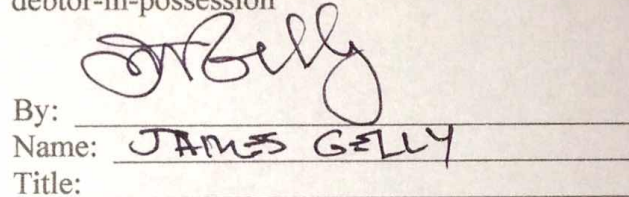 debtor-in-possession
By:
Name: JAMES GELLY
Title: